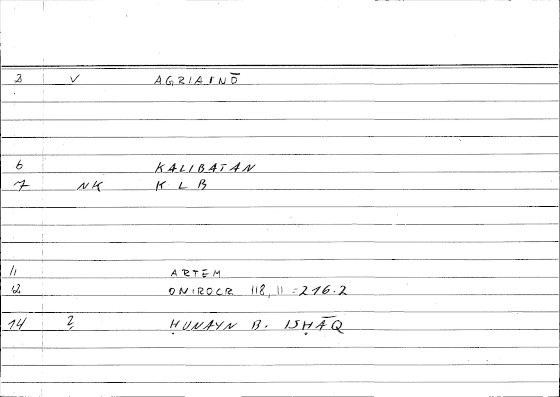 2 V AGRIAINŌ
6 KALIBATAN
7 NK K L B
11 ARTEM
12 ONIROCR 118,11 = 216.2
14 2 ḤUNAYN B. ISḤĀQ